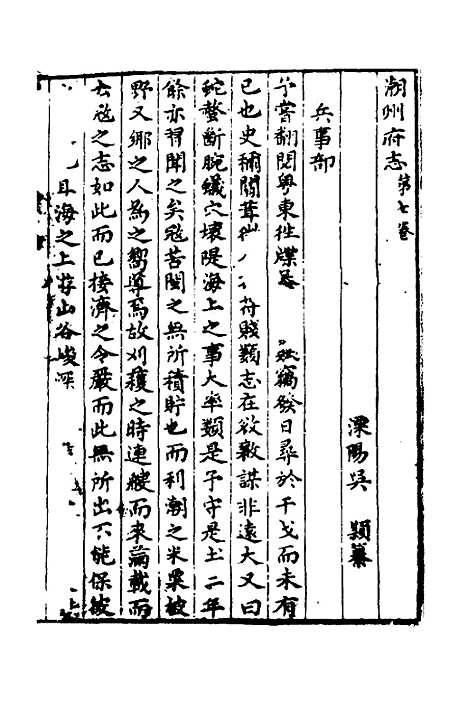 潮州府志第七卷
溧陽吳 穎纂
兵事部
予嘗翻閱粵東徃牒忌 竊發日尋於干戈而未有
已也史稱閩葺 符賤類志在欲數謀非遠大又曰
蛇螫斷腕蟻穴壞隄海上之事大率類是予守是土二年
餘亦習聞之矣冦苦閩之無所積貯也而利潮之米粟彼
野又鄉之人為之嚮導焉故刈穫之時連艘而來滿載而
去冦之志如此而已接濟之令嚴而此無所出不能保彼
且海之上游山谷峻深